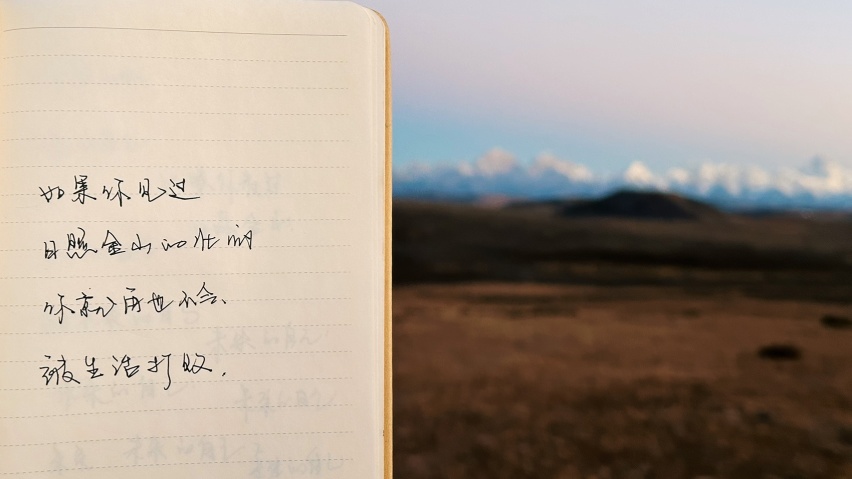 如果你见过
日照金山的壮丽
你就再也不会、
被生活打败.